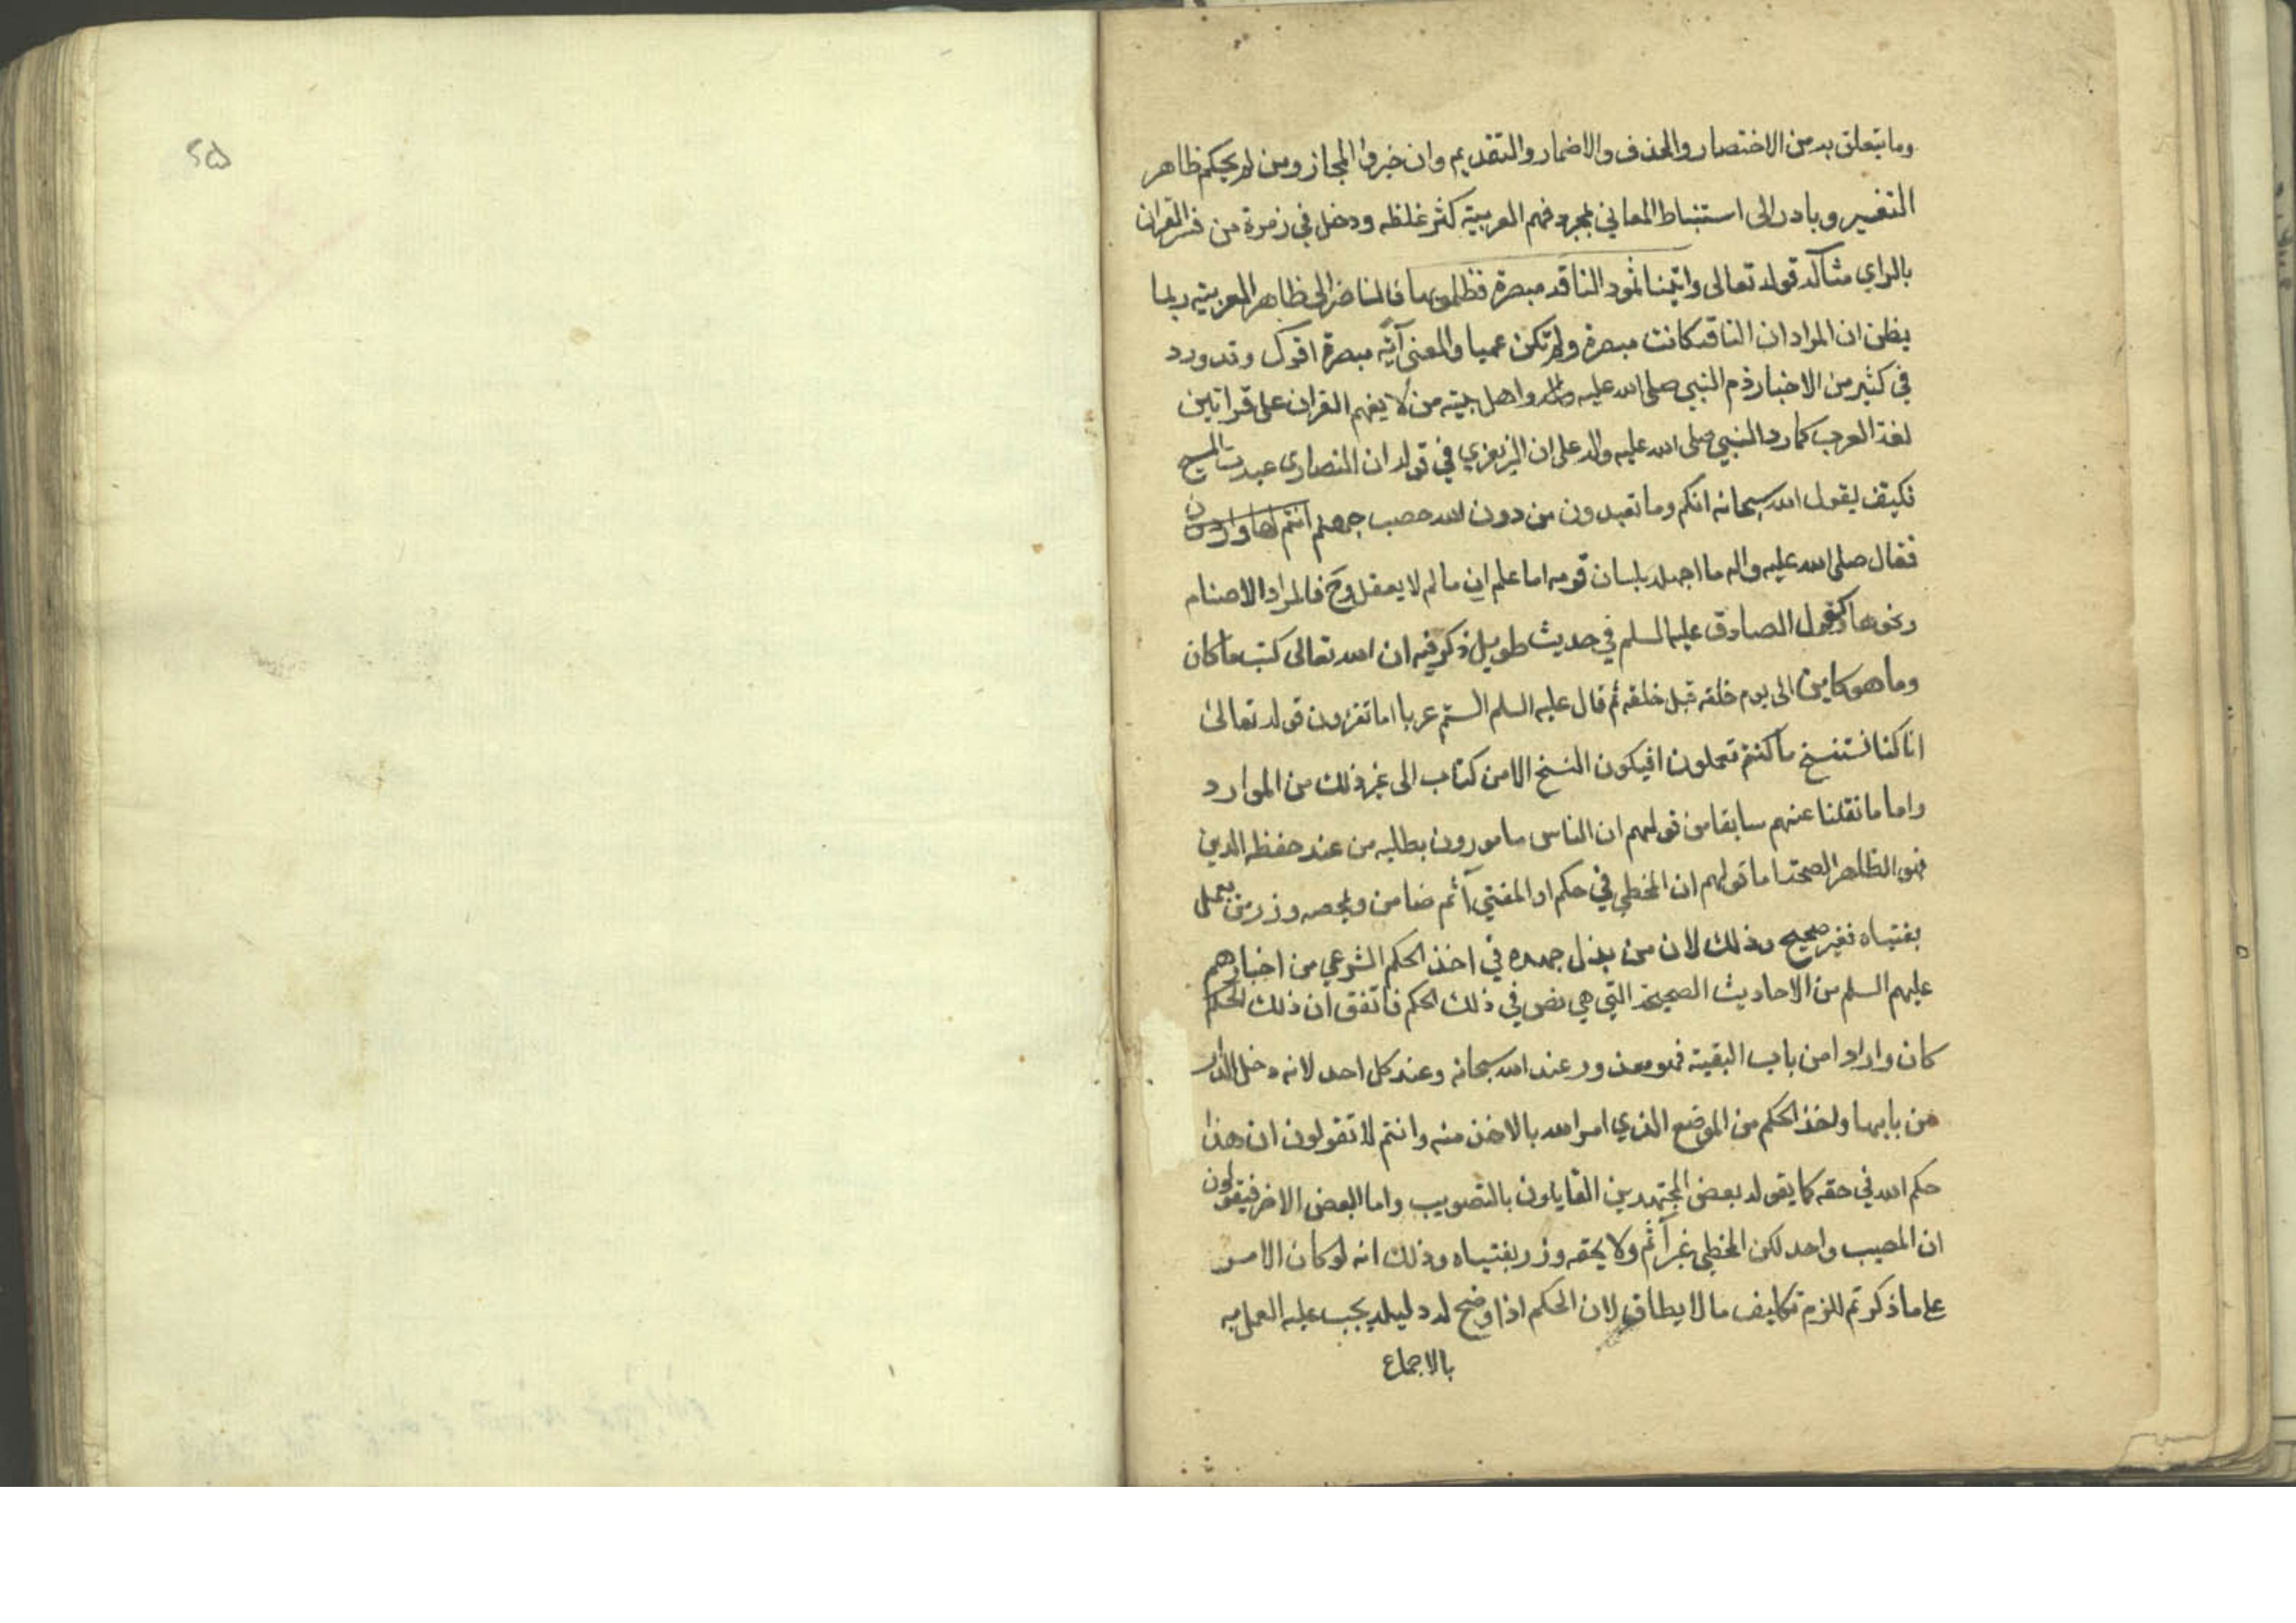 وما يتعلق به من الاختصار والحذف والاضمار والتقديم وان خبروا المجاز ومن لم يحكم ظاهر
التفسير وبادر الى استنباط المعاني بمجرد فهم العربية كثر غلطه ودخل في زمرة من فسر القران
بالراي مثاله قوله تعالى واتينا ثمود الناقة مبصرة فظلموا بها فالمناضر الى ظاهر العربية ربما
يظن ان المراد ان الناقة كانت مبصرة ولم تكن عميا والمعنى آية مبصرة اقول وقد ورد
في كثير من الاخبار ذم النبي صلى الله عليه واله واهل بيته من لا يفهم القران على قراتين
لغة العرب كما رد النبي صلى الله عليه واله على ان الزبعزي في قوله ان النصارى عبدت المسيح
فكيف يقول الله سبحانه انكم وما تعبدون من دون الله حصب جهنم انتم لها واردون
فقال صلى الله عليه واله ما اجهله بلسان قومه اما علم ان ما لم لا يعقل وح فالمراد الاصنام
ونحوها وكقول الصادق عليه السلم في حديث طويل ذكر فيه ان الله تعالى كتب ما كان
وما هو كاين الى يوم خلقه قبل خلقه ثم قال عليه السلم الستم عربا اما تقرون قوله تعالى
انا كنا نستنسخ ما كنتم تعملون افيكون النسخ الا من كتاب الى غير ذلك من الموارد
واما ما نقلنا عنهم سابقا من قولهم ان الناس مامورون بطلبه من عند حفظة الدين
فهو الظاهر الصحة اما قولهم ان المخطي في حكم او المفتي آثم ضامن ويلحقه وزر من يعمل
بفتياه فغير صحيح وذلك لان من بذل جهده في اخذ الحكم الشرعي من اخبارهم
عليهم السلم من الاحاديث الصحيحة التي هي نص في ذلك الحكم فاتفق ان ذلك الحكم
كان واردا من باب التقية فهو معذور عند الله سبحانه وعند كل احد لانه دخل الدار
من بابها واخذ الحكم من الموضع الذي امر الله بالاخذ منه وانتم لا تقولون ان هذا
حكم الله في حقه كما يقوله بعض المجتهدين القايلون بالتصويب واما البعض الاخر فيقولون
ان المصيب واحد لكن المخطي غير آثم ولا يلحقه وزر بفتياه وذلك انه لو كان الامر
على ما ذكرتم للزم تكليف ما لا يطاق لان الحكم اذا وضح له دليله يجب عليه العمل به
بالاجماع
٢٥